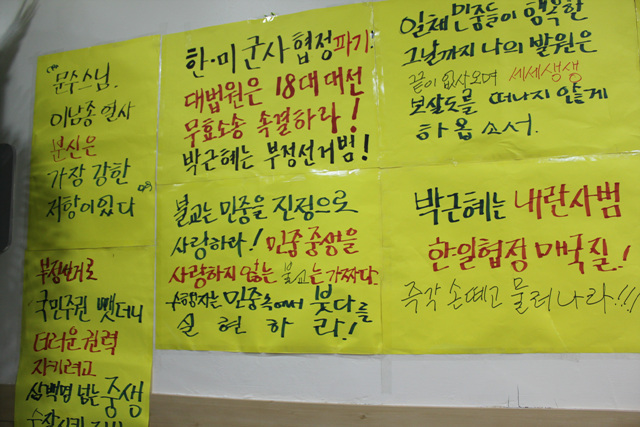 문수스님.
이남종 열사
분신은
가장 강한
저항이었다
부정선거로
국민주권 뺏더니
더러운 권력
지키려고
삼백명 넘는 중생
한·미 군사 협정 파기.
대법원은 18대 대선
무효소송 속결하라!
박근혜는 부정선거범!
불교는 민중을 진정으로
사랑하라! 민중 중생을
사랑하지 않는 불교는 가짜다.
수행자는 민중속에서 붓다를
실현하라!
일체 민중들이 행복한
그날까지 나의 발원은
끝이 없사오며 세세생생
보살도를 떠나지 않게
하옵소서.
박근혜는 내란사범
한일협정 매국질!
즉각 손떼고 물러나라!!!